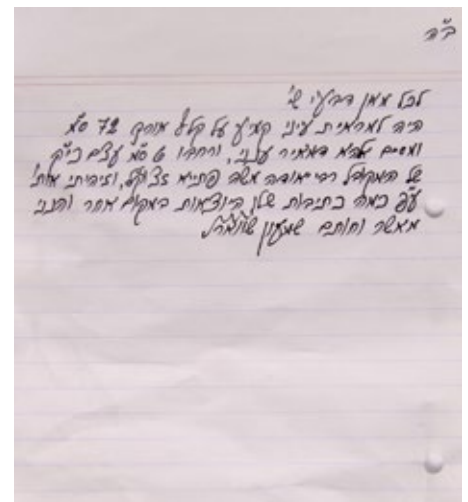 ב"ה
לכל מאן דבעי ש'
היה למראית עיני קמיע על קלף אורך 72 ס"מ
ומסיים אלהא דמאיר ענני, ורחבו 6 ס"מ עצם כי"ק
של המקובל רבי יהודה משה פתייא זצוק"ל, וזיהיתי אותו
ע"פ כמה כתיבות שלו הנמצאות במקום אחר והנני
מאשר וחותם שמעון